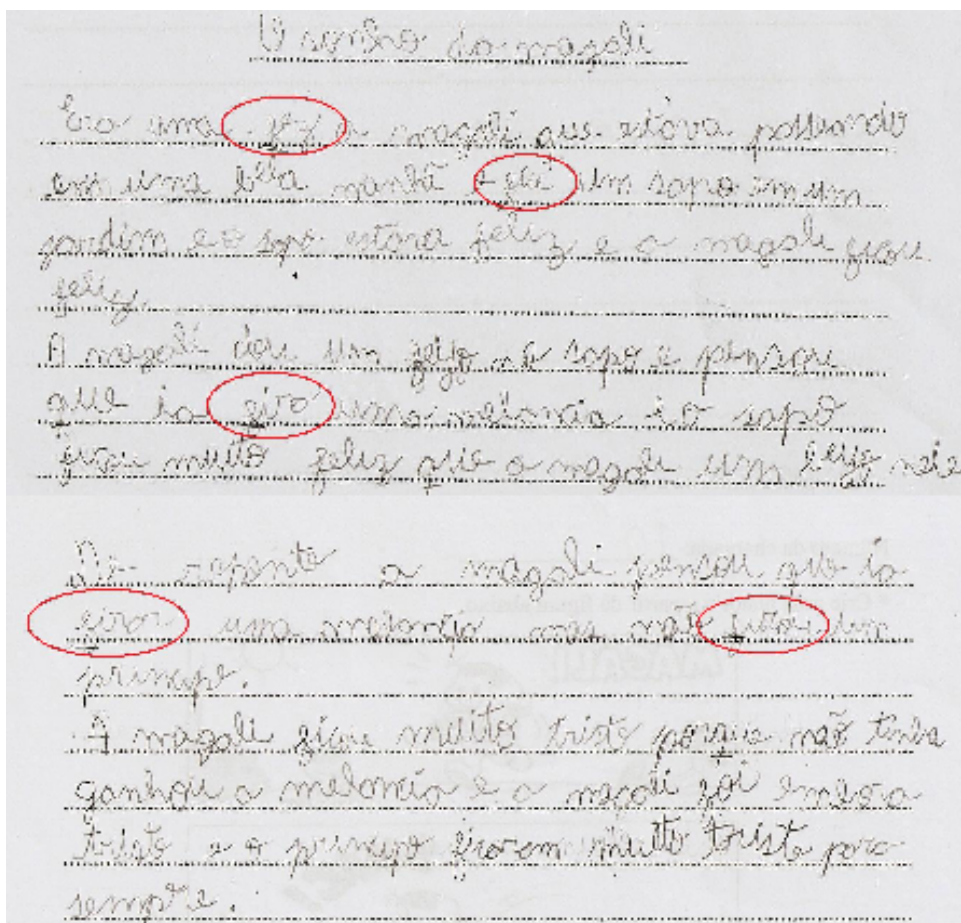 O sonho da magali
Era uma fez a magali que estava
em uma bela manhã e um sapo em um
jardim e o sapo estava feliz e a magali ficou
feliz.
A magali dou um no sapo e pensou
que ia uma melancia e o sapo
ficou muito feliz que a magali um nele
De repente a magali pensou que ia
firar uma mas não um
principe.
A magali ficou muito triste porque não tinha
ganhou a melancia e a magali foi embora
triste e o principe ficaram muito triste para
sempre.